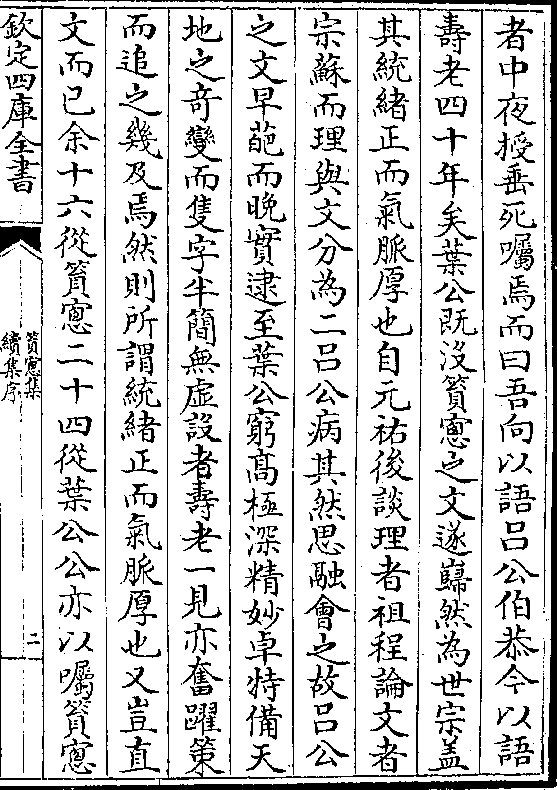 者中夜授垂死囑焉而曰吾向以語吕公伯恭今以語
壽老四十年矣葉公既沒篔窻之文遂巋然為世宗盖
其統緒正而氣脈厚也自元祐後談理者祖程論文者
宗蘇而理與文分為二吕公病其然思融會之故吕公
之文早葩而晚實逮至葉公窮髙極深精妙卓特備天
地之竒變而隻字半簡無虚設者壽老一見亦奮躍策
而追之幾及焉然則所謂統緒正而氣脈厚也又豈直
文而已余十六從篔窻二十四從葉公公亦以囑篔窻
欽定四庫全書
篔窻集
續集序
二